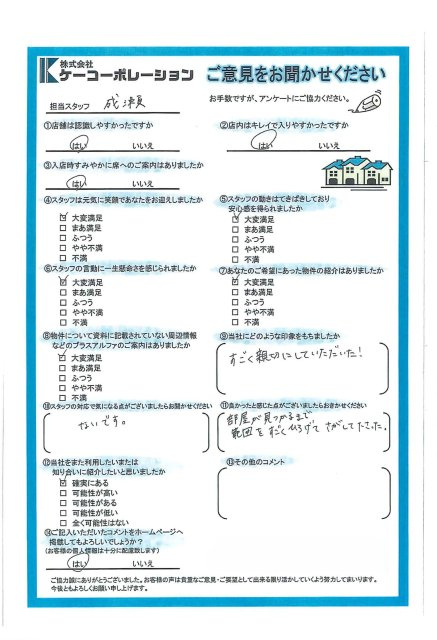 株式会社
ケーコーポレーション
ご意見をお聞かせください
担当スタッフ 成瀬
お手数ですが、アンケートにご協力ください。
①店舗は認識しやすかったですか
はい いいえ
②店内はキレイで入りやすかったですか
はい いいえ
③入店時すみやかに席へのご案内はありましたか
はい いいえ
④スタッフは元気に笑顔であなたをお迎えしましたか
☑ 大変満足
□ まあ満足
□ ふつう
□ やや不満
□ 不満
⑤スタッフの動きはてきぱきしており
安心感を得られましたか
☑ 大変満足
□ まあ満足
□ ふつう
□ やや不満
□ 不満
⑥スタッフの言動に一生懸命さを感じられましたか
☑ 大変満足
□ まあ満足
□ ふつう
□ やや不満
□ 不満
⑦あなたのご希望にあった物件の紹介はありましたか
☑ 大変満足
□ まあ満足
□ ふつう
□ やや不満
□ 不満
⑧物件について資料に記載されていない周辺情報
などのプラスアルファのご案内はありましたか
☑ 大変満足
□ まあ満足
□ ふつう
□ やや不満
□ 不満
⑨当社にどのような印象をもちましたか
すごく親切にしていただいた!
⑩スタッフの対応で気になる点がございましたらお聞かせください
ないです。
⑪良かったと感じた点がございましたらおきかせください
部屋が見つかるまで
範囲をすごくひろげてさがしてくださった。
⑫当社をまた利用したいまたは
知り合いに紹介したいと思いましたか
☑ 確実にある
□ 可能性が高い
□ 可能性がある
□ 可能性が低い
□ 全く可能性はない
⑬その他のコメント
⑭ご記入いただいたコメントをホームページへ
掲載してもよろしいでしょうか?
(お客様の個人情報は十分に配慮致します)
はい いいえ
ご協力誠にありがとうございました。お客様の声は貴重なご意見・ご要望として出来る限り活かしていくよう努力してまいります。
今後ともよろしくお願い申し上げます。